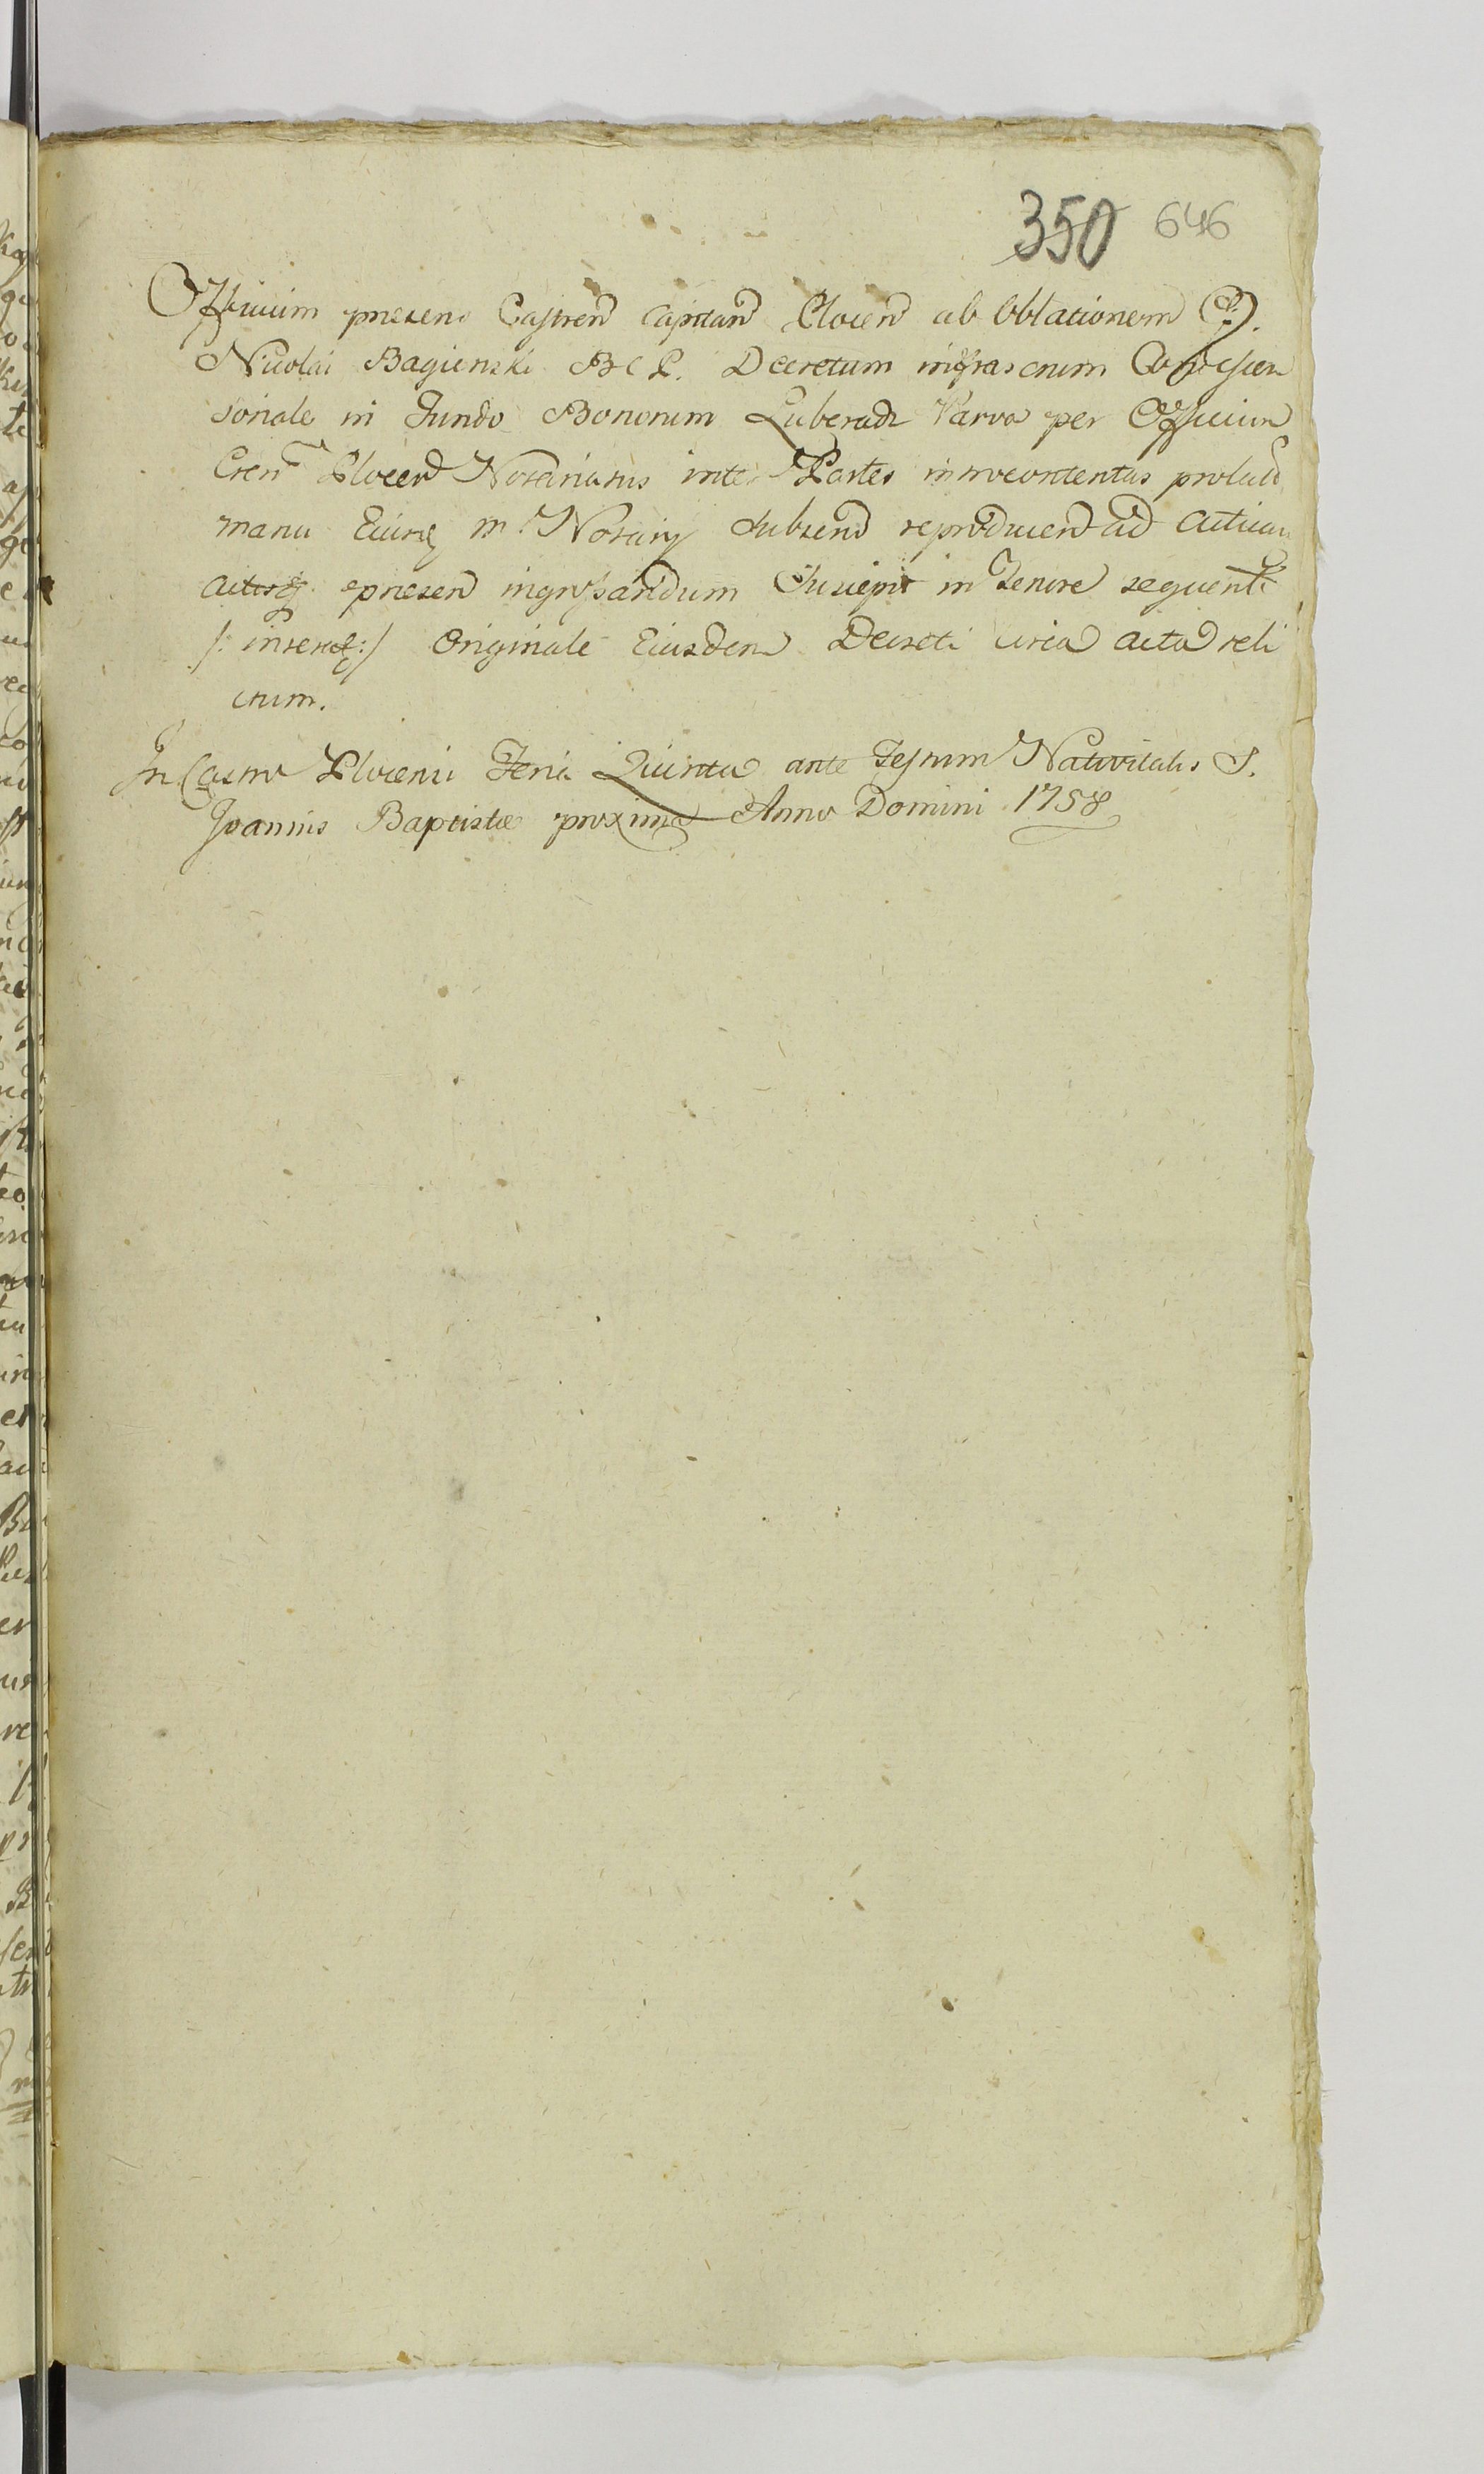 350 646
Officium presens Castren Capitan Plocen ab Oblationem G.
Nicolai Bagienski BCP. Decretum infrascrium Condescen
sionale in Fundo Bonorum Luberadz Parva per Officium
Cren Plocen Notariatus inter Partes introcontentas prolat
manu Eiusq m. Notarij Subscris reproducen ad Actican
actisq presen ingrossandum Suscepit in Tenore sequenti
/: inseratq :/ Originale Eiusdem Decreti circa acta reli
ctum.
In Castro Plocensi Feria Quinta ante Festum Nativitatis S.
Joannis Baptistæ proxima Anno Domini 1758